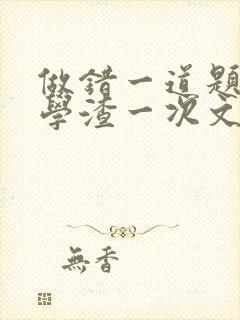 做錯一道題
學渣一次文
無香